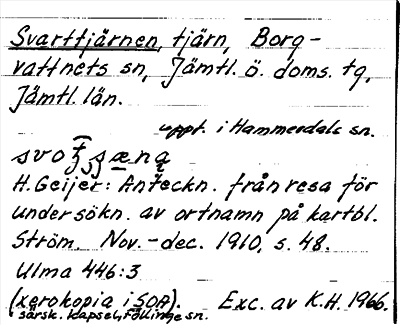 Svarttjärnen, tjärn, Borg-
vattnets sn, Jämtl. ö. doms. tg,
Jämtl. län.
uppt. i Hammerdals sn.
H. Geijer: Anteckn. från resa för
undersökn. av ortnamn på kartbl.
Ström. Nov.-dec. 1910, s. 48.
Ulma 446:3
(xerokopia i SOA). Exc. av K.H. 1966.
särsk. kapsel, Föllinge sn.